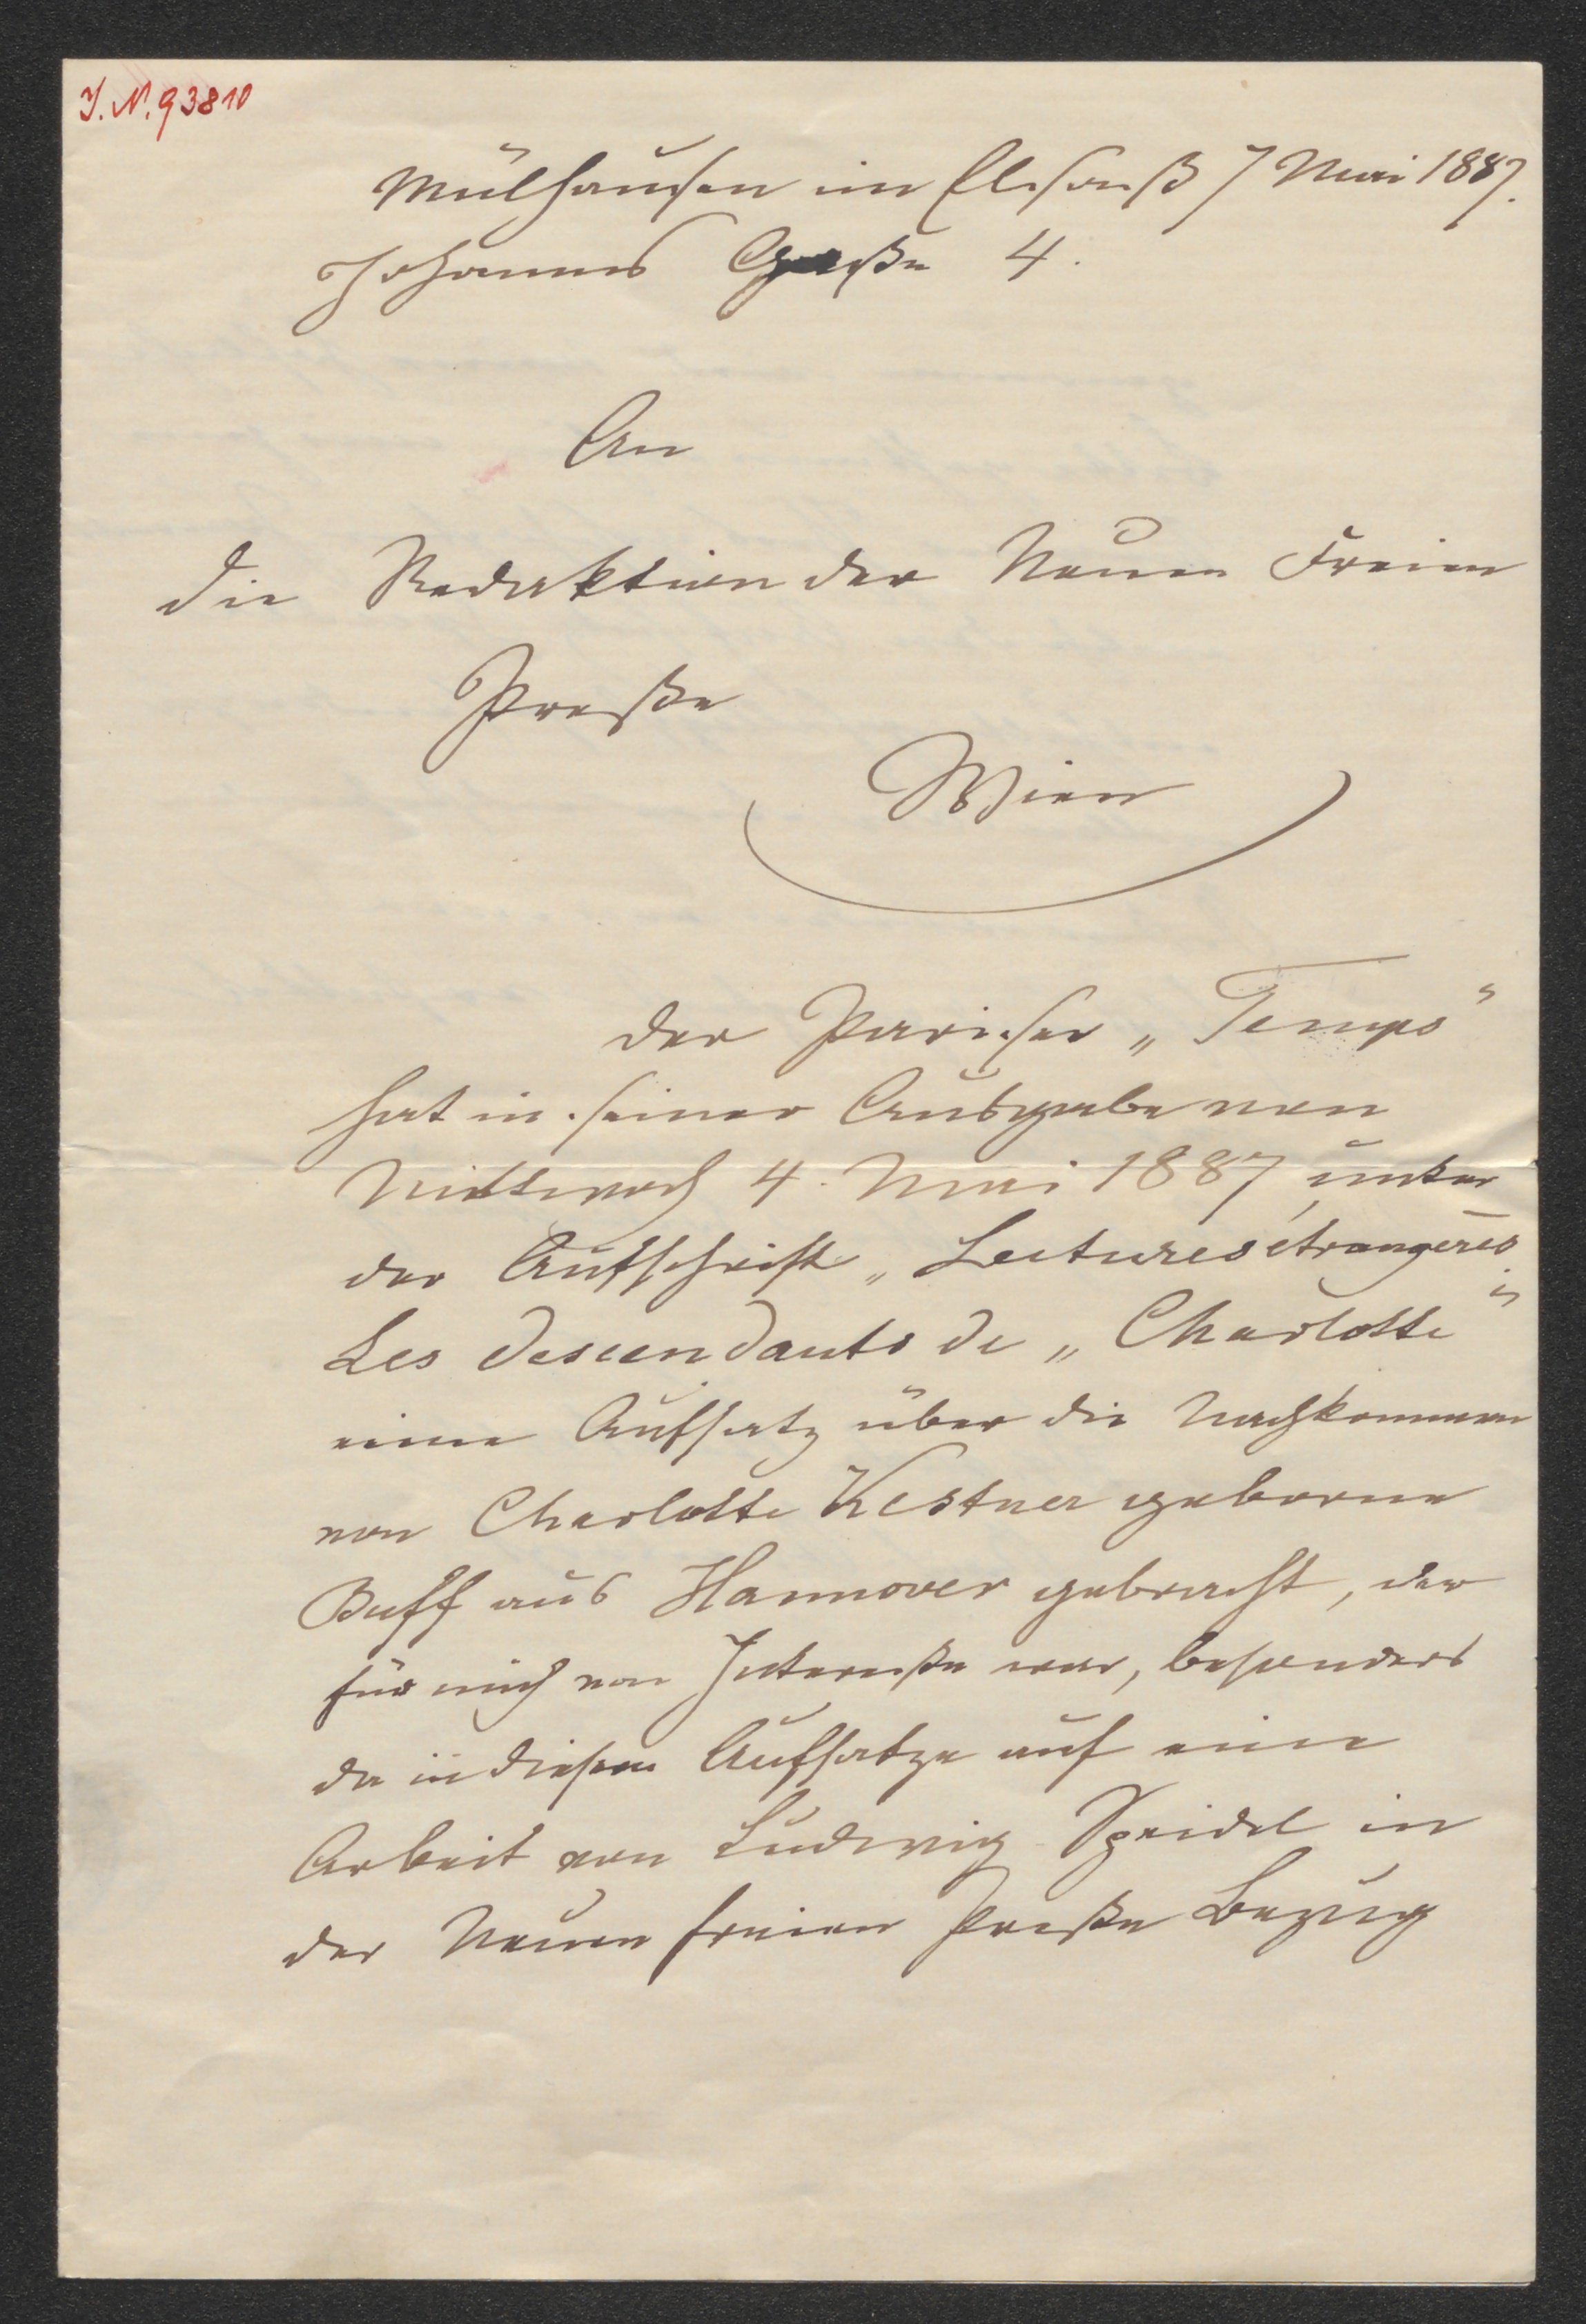 J. N. 93810
Mülhausen im Elsaß 7 Mai 1887.
Johannes Gaße 4.
An
die Redaktion der Neuen Freien
Preße
Wien
Der Pariser „Temps"
hat in seiner Ausgabe von
Mittwoch 4. Mai 1887, unter
der Aufschrift „Lectures étrangères.
Les descendants de „Charlotte"
einen Aufsatz über die Nachkommen
von Charlotte Kestner geborne
Buff aus Hannover gebracht, der
für mich von Intereße war, besonders
da in diesem Aufsatze auf eine
Arbeit von Ludwig Speidel in
der Neuen freien Preße Bezug